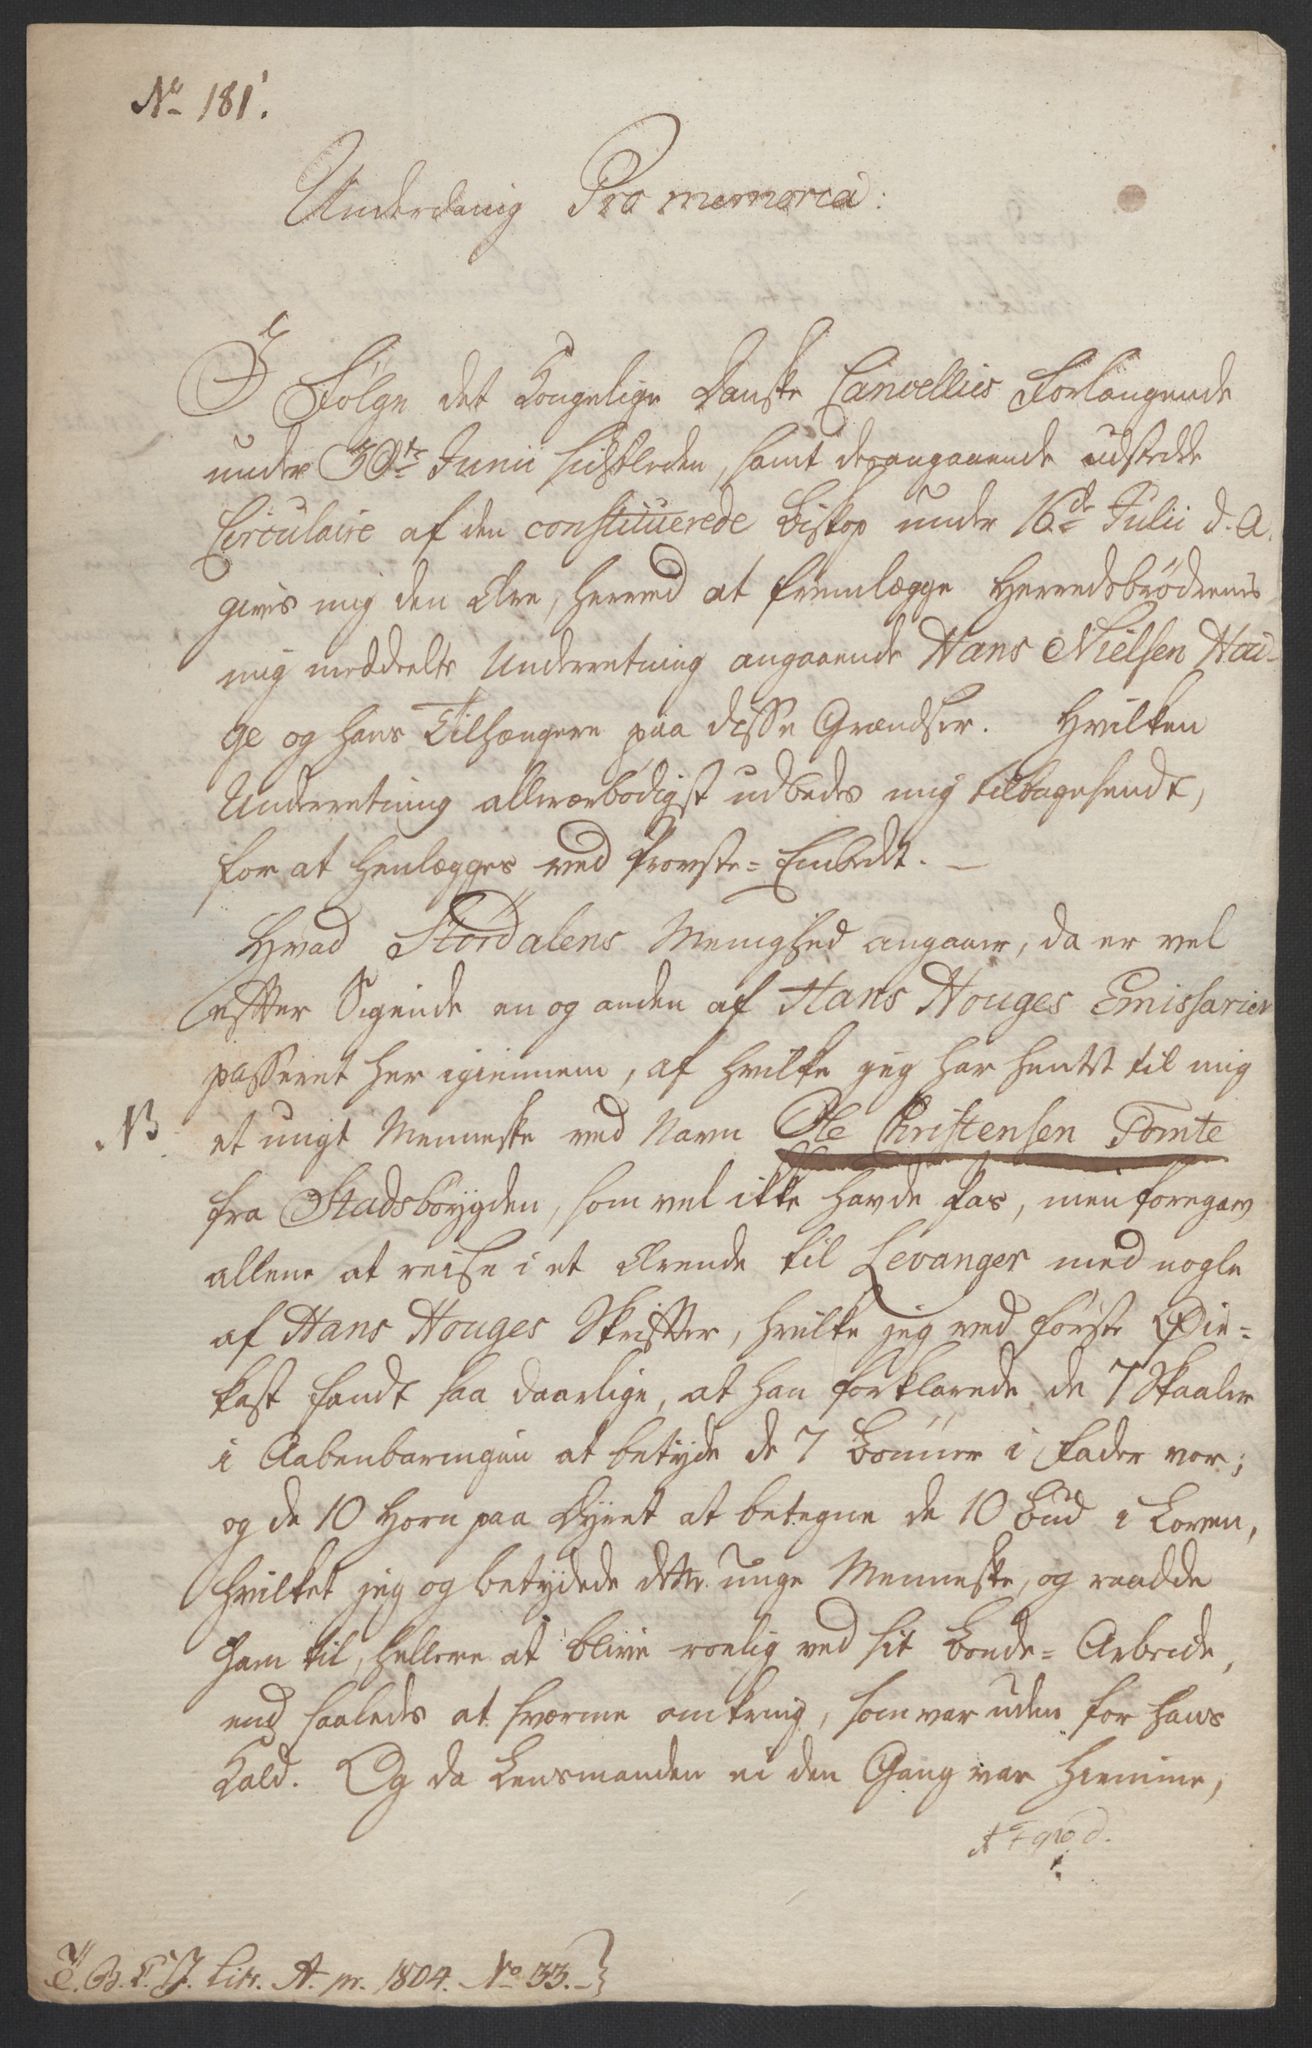 No 181.
Underdanig Pro memoria:
I Følge det Kongelige Danske Cancellies Forlangende
under 30te Junii sidstleden, samt desangaaende udstedde
Circulaire af den constituerede Biskop under 16de Julii d. A.
gives mig den Ære, herved at fremlægge Herredsbrødrenes
mig meddeelte Underretning angaaende Hans Nielsen Hou-
ge og hans Tilhængere paa disse Grændser. Hvilken
Underretning allerærbødigst udbedes mig tilbagesendt,
for at henlægges ved Provste-Embedet. —
Hvad Størdalens Menighed angaaer, da er vel
efter Sigende en og anden af Hans Houges Emissarier
passeret her igiennem, af hvilke jeg har hentet til mig
NB et ungt Menneske ved Navn Ole Christensen Tomte
fra Stadsbøygden, som vel ikke havde Pas, men foregav
allene at reise i et Ærende til Levanger med nogle
af Hans Houges Skrifter, hvilke jeg ved første Øie-
kast fandt saa daarlige, at han forklarede de 7 Skaaler
i Aabenbaringen at betyde de 7 Bønner i Fader vor;
og de 10 Horn paa Dyret at betegne de 10 Bud i Loven,
hvilket jeg og betydede dette unge Menneske, og raadde
ham til, hellere at blive roelig ved sit Bonde-Arbeide,
end saaledes at sværme omkring, som var uden for hans
Kald. Og da Lensmanden ei den Gang var hiemme,
T. B. C. J. Litr. A. pr. 1804. No 33.